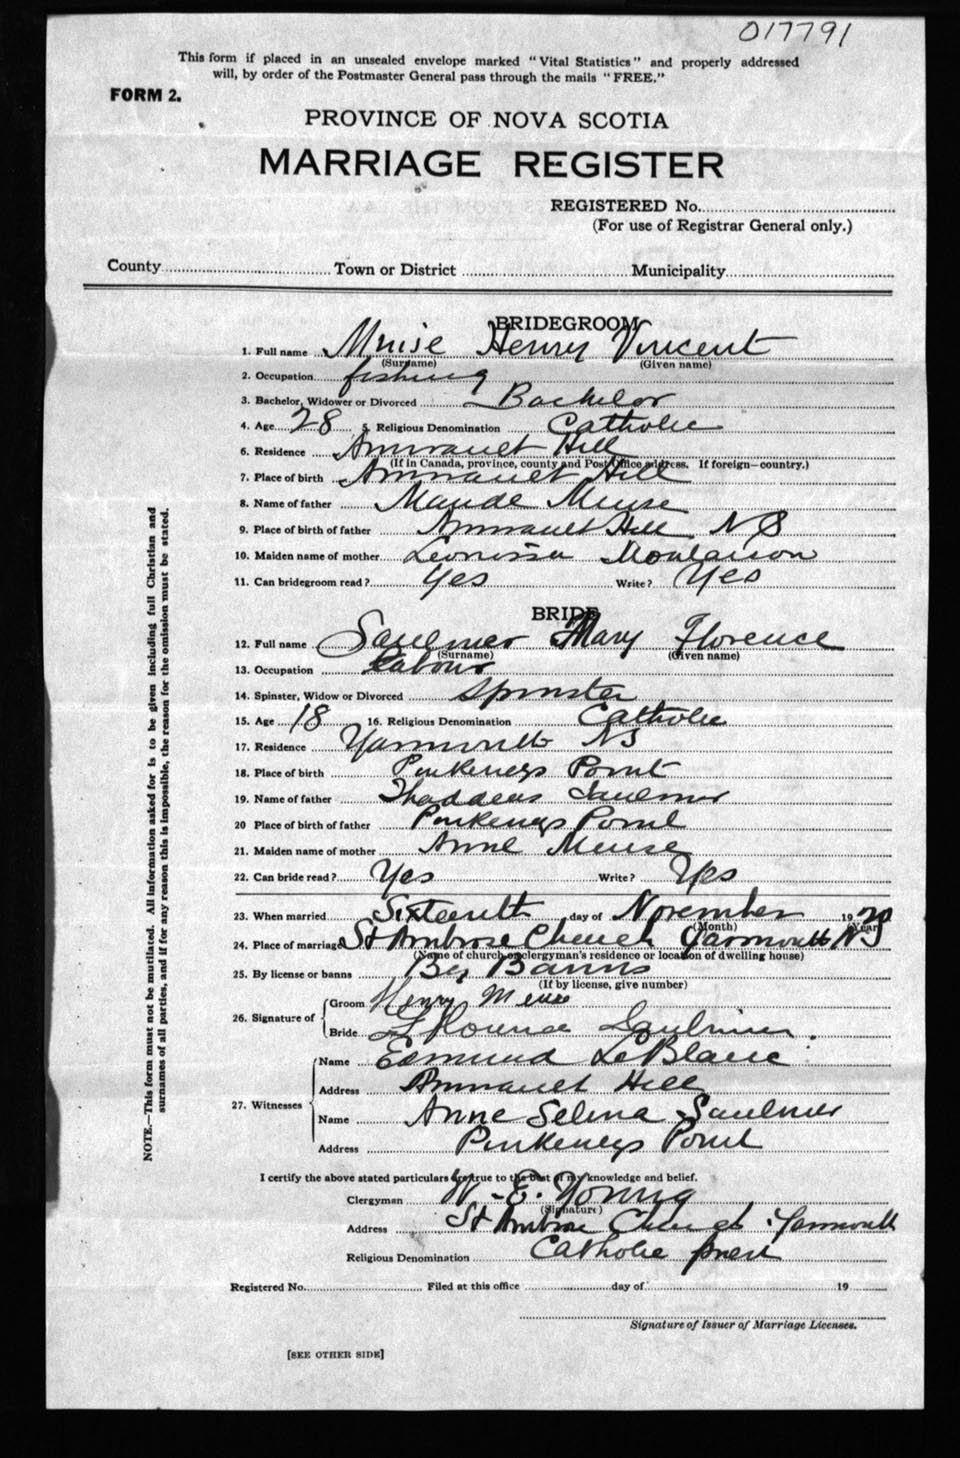 017791
This form if placed in an unsealed envelope marked "Vital Statistics" and properly addressed
will, by order of the Postmaster General pass through the mails "FREE."
FORM 2.
PROVINCE OF NOVA SCOTIA
MARRIAGE REGISTER
REGISTERED No.
(For use of Registrar General only.)
County Town or District Municipality
BRIDEGROOM
1. Full name Muise Henry Vincent
(Surname) (Given name)
2. Occupation fishing
3. Bachelor, Widower or Divorced Bachelor
4. Age 28 5. Religious Denomination Catholic
6. Residence Amirault Hill
(If in Canada, province, county and Post Office address. If foreign—country.)
7. Place of birth Amirault Hill
8. Name of father Mande Muise
9. Place of birth of father Amirault Hill NS
10. Maiden name of mother Moulaison
11. Can bridegroom read? Yes Write? Yes
BRIDE
12. Full name Saulnier Mary Florence
(Surname) (Given name)
13. Occupation Labour
14. Spinster, Widow or Divorced Spinster
15. Age 18 16. Religious Denomination Catholic
17. Residence Yarmouth NS
18. Place of birth Pinkneys Point
19. Name of father Thaddeus Saulnier
20 Place of birth of father Pinkneys Point
21. Maiden name of mother Anne Muise
22. Can bride read? Yes Write? Yes
23. When married Sixteenth day of November 19
(Month) (Year)
24. Place of marriage St Ambrose Church Yarmouth NS
(Name of church or clergyman's residence or location of dwelling house)
25. By license or banns By Banns
(If by license, give number)
26. Signature of Groom Henry Meuse
Bride Florence Saulnier
27. Witnesses Name Edmund LeBlanc
Address Amirault Hill
Name Anne Selina Saulnier
Address Pinkneys Point
I certify the above stated particulars are true to the best of my knowledge and belief.
Clergyman W. E. Young
(Signature)
Address St Ambrose Church Yarmouth
Religious Denomination Catholic priest
Registered No. Filed at this office day of 19
Signature of Issuer of Marriage Licenses.
[SEE OTHER SIDE]
NOTE.—This form must not be mutilated. All information asked for is to be given including full Christian and
surnames of all parties, and if for any reason this is impossible, the reason for the omission must be stated.